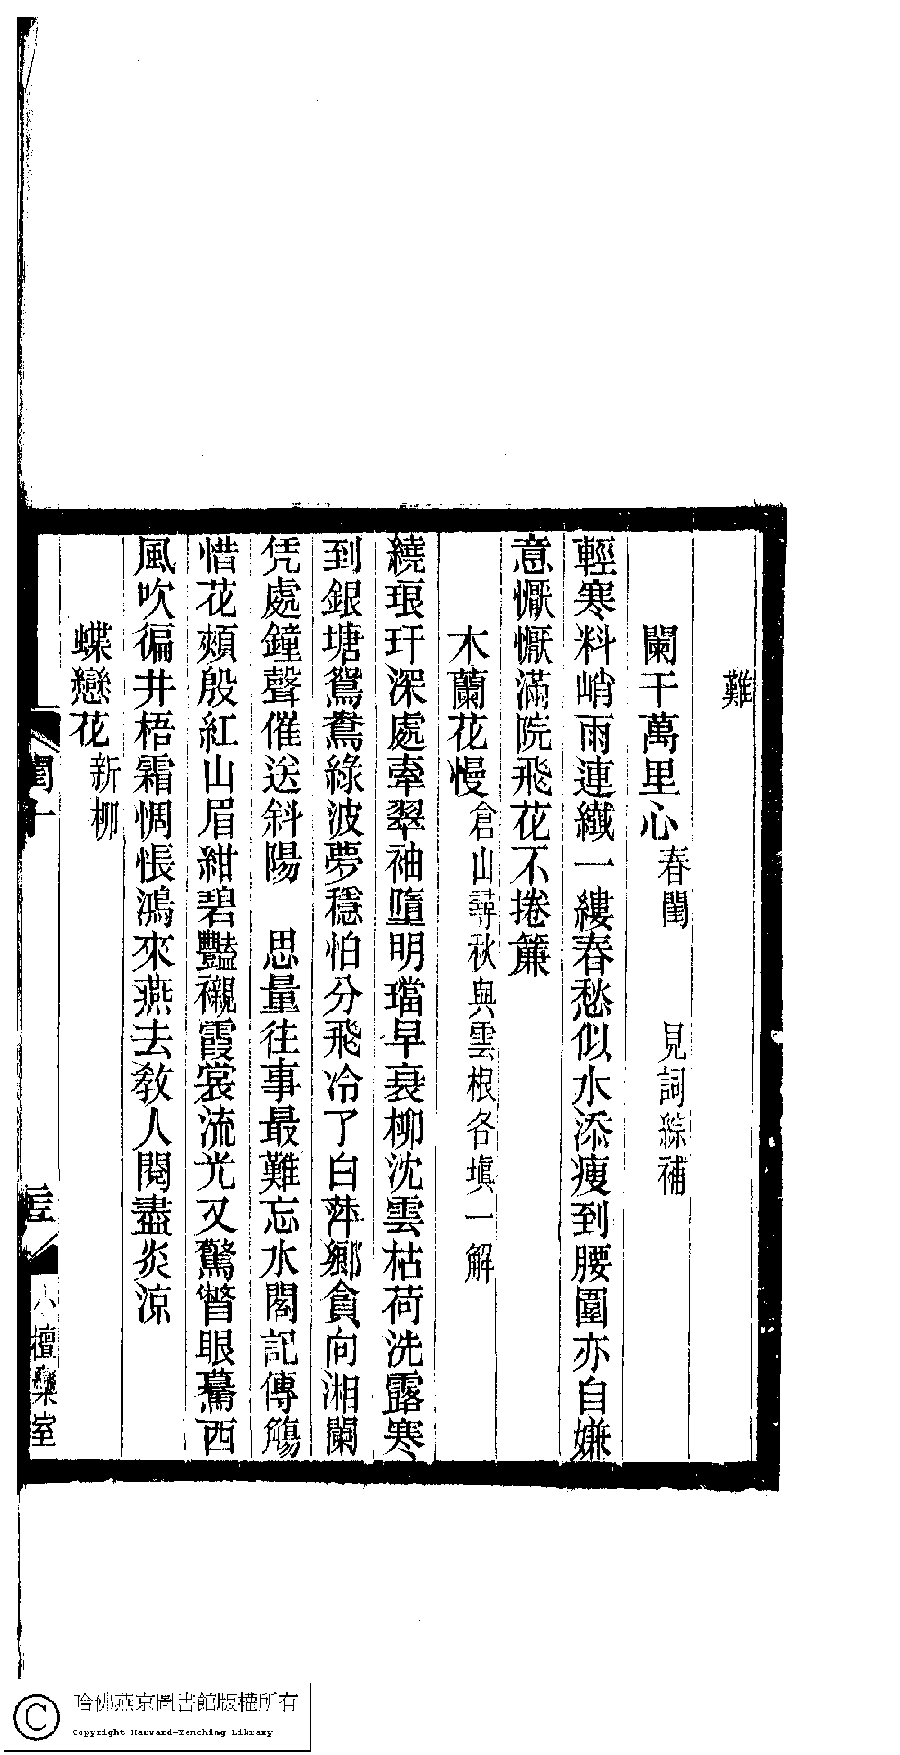 難
闌干萬里心 春閨 見詞綜補
輕寒料峭雨連纖一縷春愁似水添瘦到腰圍亦自嫌
意懨懨滿院飛花不捲簾
木蘭花慢 倉山尋秋與雲根各塡一解
繞琅玕深處牽翠袖墮明璫早衰柳沈雲枯荷洗露寒
到銀塘鴛鴦綠波夢穩怕分飛冷了白萍鄉貪向湘闌
凭處鐘聲催送斜陽 思量往事最難忘水閣記傳觴
惜花頰殷紅山眉紺碧豔襯霞裳流光又驚瞥眼驀西
風吹徧井梧霜惆悵鴻來燕去敎人閱盡炎涼
蝶戀花 新柳
閨十
小檀欒室
哈佛燕京圖書館版權所有
Copyright Harvard-Yenching Library